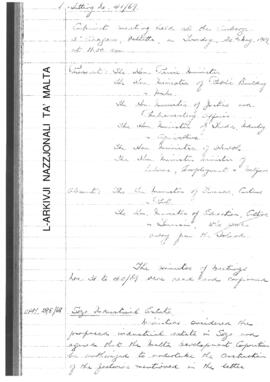 1. Sitting No. 41/69
Cabinet meeting held at the Auberge
d'Aragon, Valletta, on Tuesday, 1969
at 11.00 am
Present: The Hon. Prime Minister
The Hon. Minister of Public Building
& Works
The Hon. Minister of Justice and
Parliamentary Affairs
The Hon. Minister of Trade, Industry
& Agriculture
The Hon. Minister of Health
The Hon. Minister of
Labour, Employment & Welfare
Absent: The Hon. Minister of Finance, Customs
& Port
The Hon. Minister of Education, Culture
& Tourism, who were
away from the Island.
The minutes of meetings
Nos. to 40/69 were read and confirmed
OPM. /68 Gozo Industrial Estate
Ministers considered the
proposed industrial estate in Gozo and
agreed that the Malta Development Corporation
be authorized to undertake the construction
of the factories mentioned in the letter
L-ARKIVJI NAZZJONALI TA' MALTA